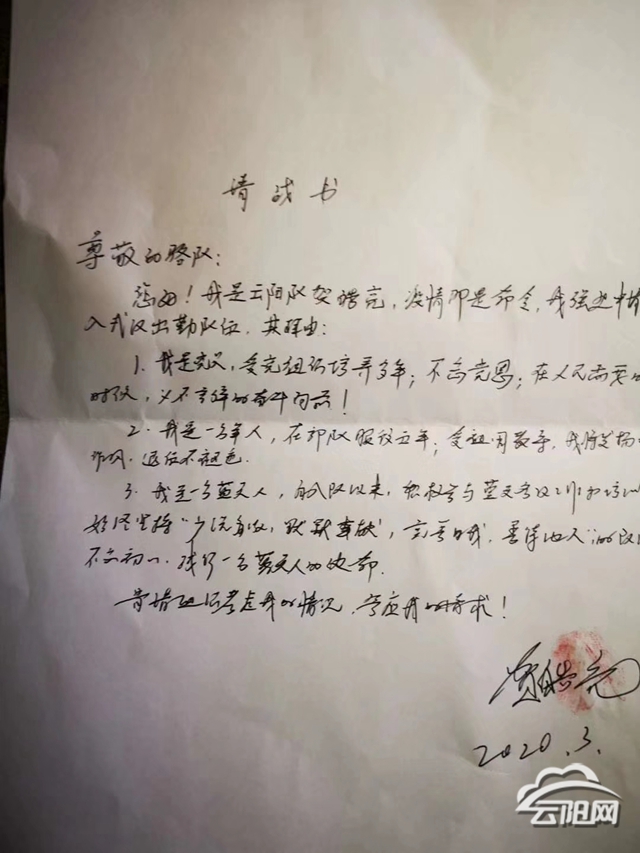 请战书
尊敬的骆队：
您好！我是云阳队贺皓亮，疫情即是命令，我强烈申请
入武汉出勤队伍，其理由：
1、我是党员，受党组织培养多年；不忘党恩；在人民需要的
时候，义不容辞的奋斗向前！
2、我是一名军人，在部队服役五年；受祖国教导，我将发扬
作风，退伍不褪色。
3、我是一名蓝天人，自入队以来，积极参与蓝天各项工作和培训
始终坚持“少说多做，默默奉献，完善自我，善待他人”的
不忘初心，践行一名蓝天人的使命。
肯请组织考虑我的情况，答应我的請求！
2020.3.
云阳网